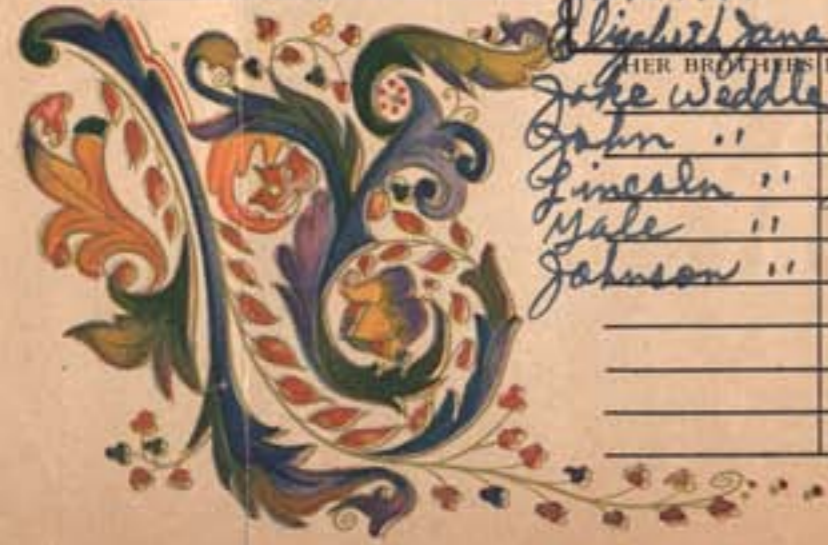 Elizabeth Jane
HER BROTHERS
Jake Weddle
John "
Lincoln "
Yale "
Johnson "